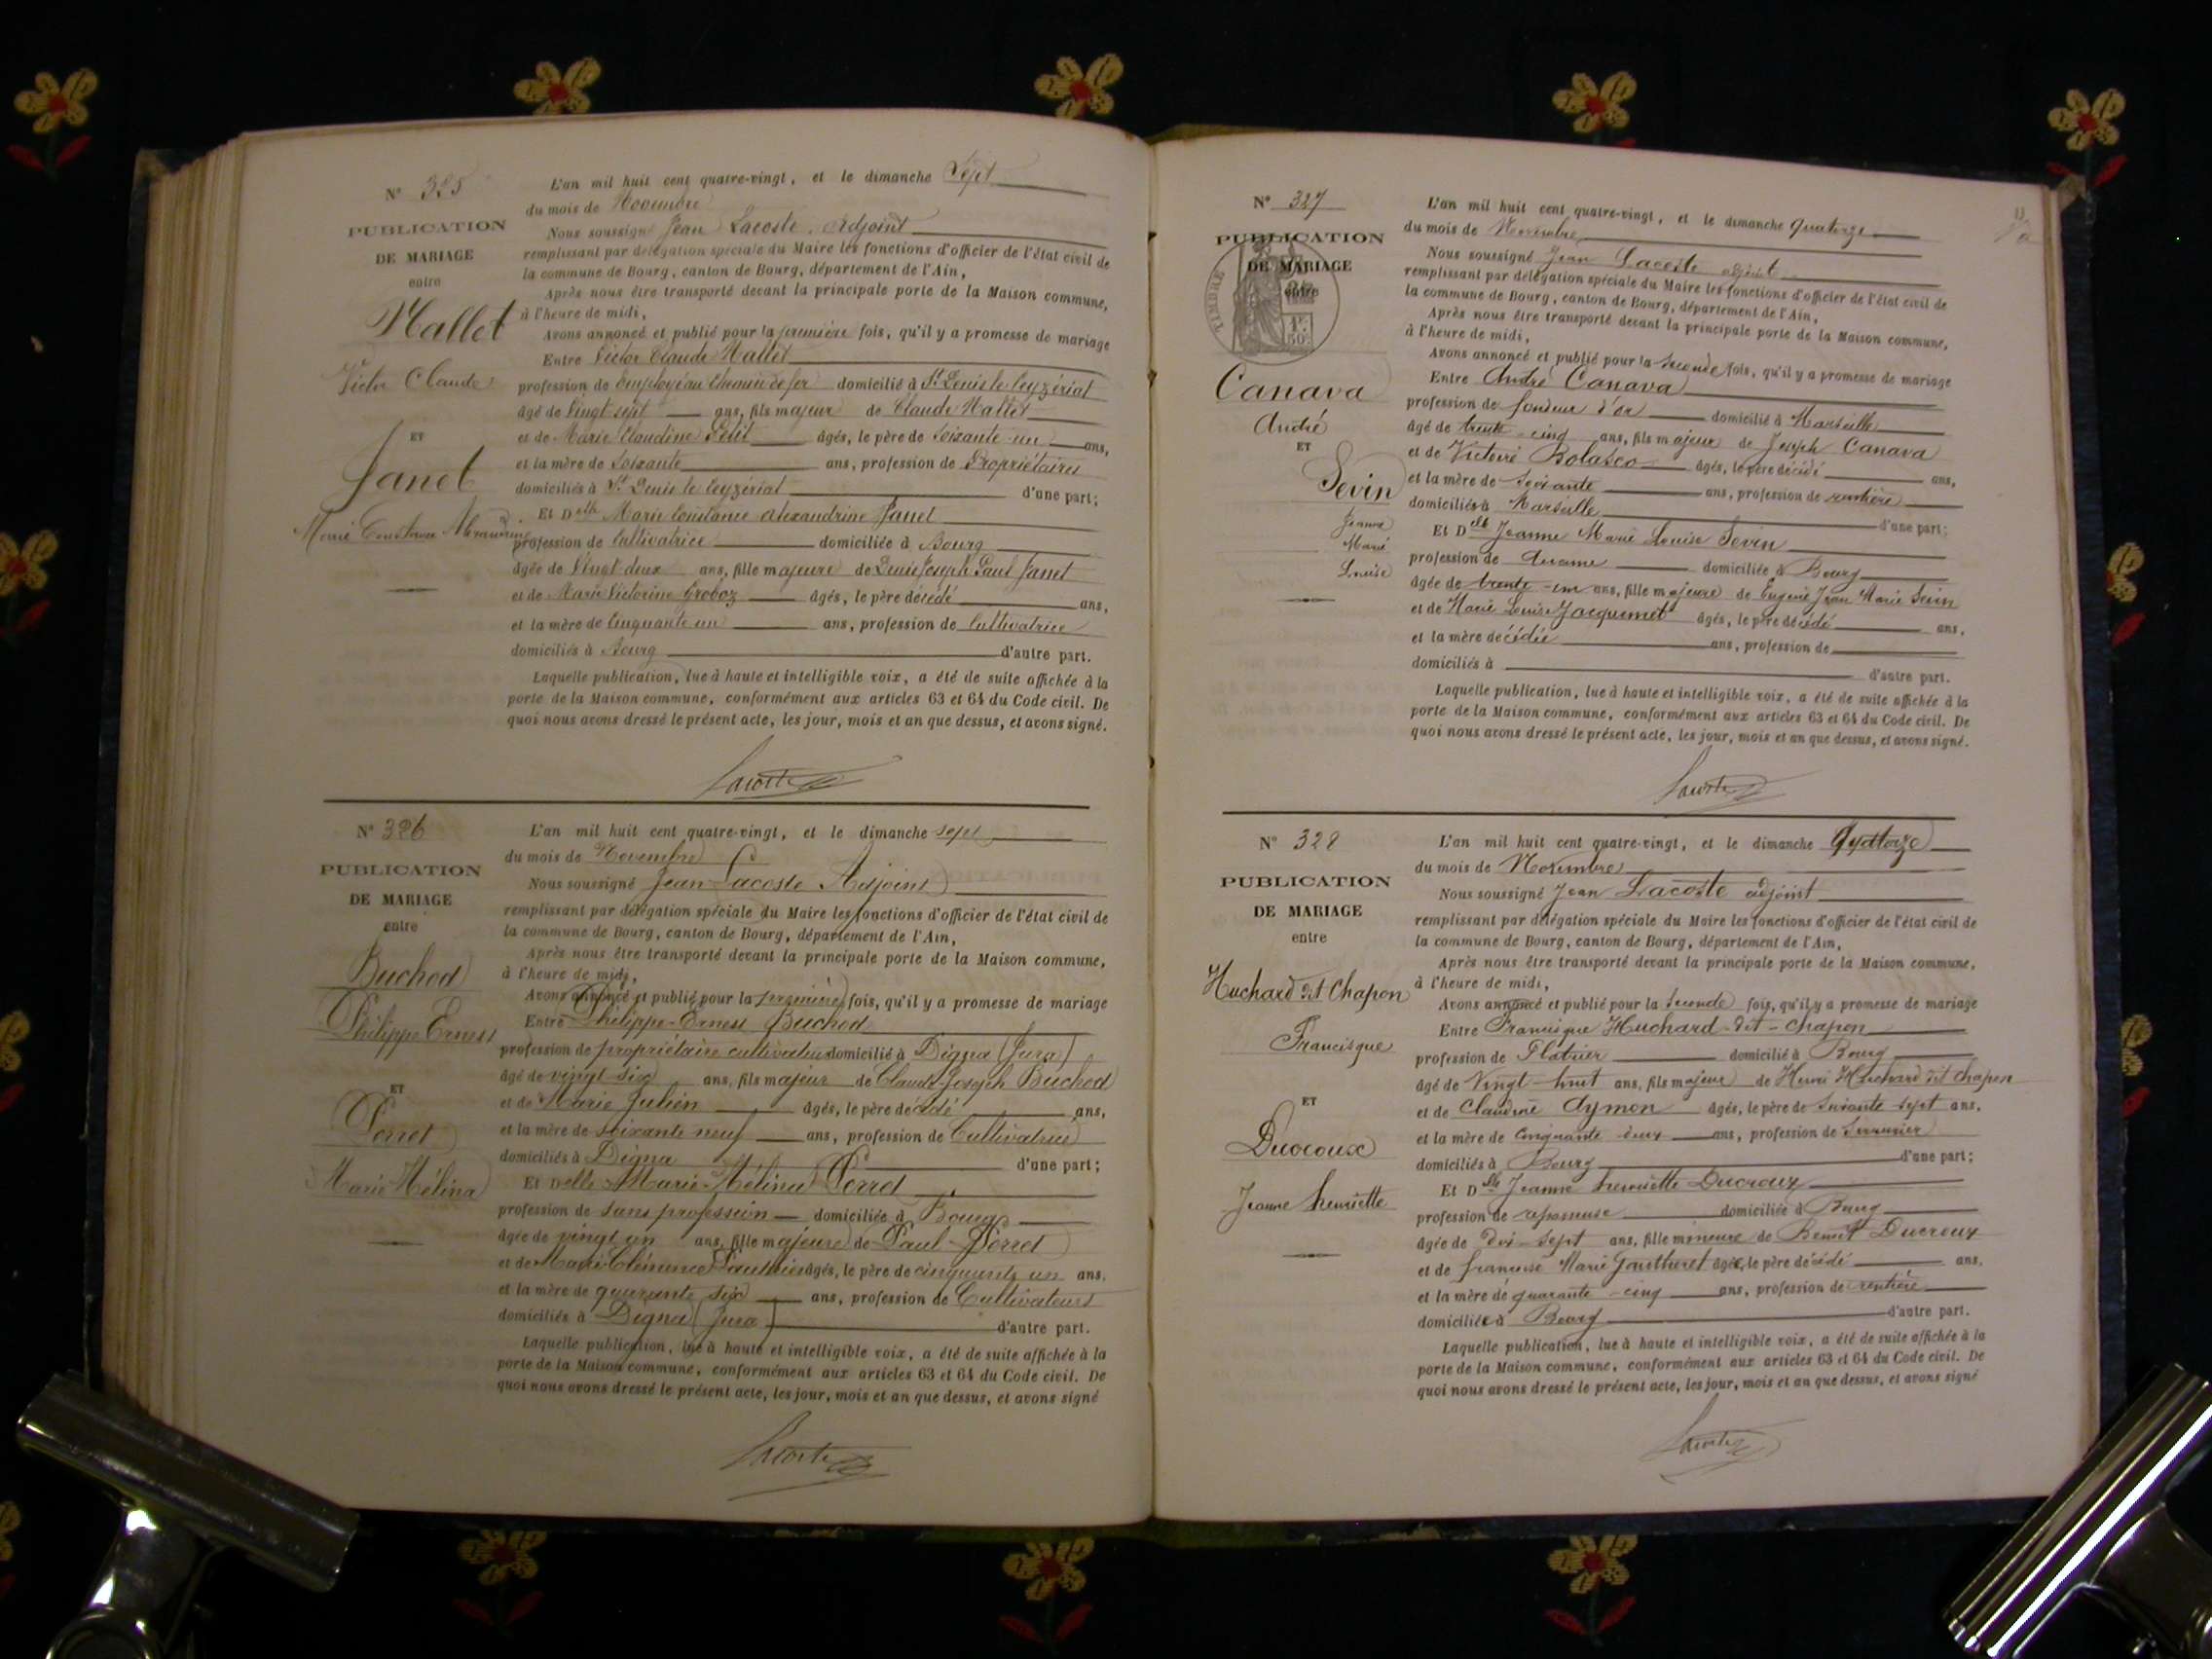 N° 325
PUBLICATION
DE MARIAGE
entre
Hallet
Victor Claude
ET
Janet
Marie Constance Alexandrine
L'an mil huit cent quatre-vingt, et le dimanche Sept
du mois de Novembre
Nous soussigné Jean Lacoste, Adjoint
remplissant par délégation spéciale du Maire les fonctions d'officier de l'état civil de
la commune de Bourg, canton de Bourg, département de l'Ain,
Après nous être transporté devant la principale porte de la Maison commune,
à l'heure de midi,
Avons annoncé et publié pour la première fois, qu'il y a promesse de mariage
Entre Victor Claude Hallet
profession de Employé au Chemin de fer domicilié à St Denis le Ceyzériat
âgé de Vingt sept ans, fils majeur de Claude Hallet
et de Marie Claudine Petit âgés, le père de Soixante-un ans,
et la mère de Soixante ans, profession de Propriétaires
domiciliés à St Denis le Ceyzériat d'une part;
Et Delle Marie Constance Alexandrine Janet
profession de Cultivatrice domiciliée à Bourg
âgée de Vingt-deux ans, fille majeure de Denis Joseph Paul Janet
et de Marie Victorine Groboz âgés, le père décédé ans,
et la mère de Cinquante un ans, profession de Cultivatrice
domiciliés à Bourg d'autre part.
Laquelle publication, lue à haute et intelligible voix, a été de suite affichée à la
porte de la Maison commune, conformément aux articles 63 et 64 du Code civil. De
quoi nous avons dressé le présent acte, les jour, mois et an que dessus, et avons signé.
Lacoste
N° 326
PUBLICATION
DE MARIAGE
entre
Buchod
Philippe Ernest
ET
Perret
Marie Mélina
L'an mil huit cent quatre-vingt, et le dimanche sept
du mois de Novembre
Nous soussigné Jean Lacoste Adjoint
remplissant par délégation spéciale du Maire les fonctions d'officier de l'état civil de
la commune de Bourg, canton de Bourg, département de l'Ain,
Après nous être transporté devant la principale porte de la Maison commune,
à l'heure de midi,
Avons annoncé et publié pour la première fois, qu'il y a promesse de mariage
Entre Philippe-Ernest Buchod
profession de propriétaire cultivateur domicilié à Digna (Jura)
âgé de vingt-six ans, fils majeur de Claude-Joseph Buchod
et de Marie Julien âgés, le père décédé ans,
et la mère de soixante neuf ans, profession de Cultivatrice
domiciliés à Digna d'une part;
Et Delle Marie-Mélina Perret
profession de sans profession domiciliée à Bourg
âgée de vingt un ans, fille majeure de Paul Perret
et de Marie Clémence âgés, le père de cinquante un ans,
et la mère de quarante six ans, profession de Cultivateurs
domiciliés à Digna (Jura) d'autre part.
Laquelle publication, lue à haute et intelligible voix, a été de suite affichée à la
porte de la Maison commune, conformément aux articles 63 et 64 du Code civil. De
quoi nous avons dressé le présent acte, les jour, mois et an que dessus, et avons signé
Lacoste
N° 327
PUBLICATION
DE MARIAGE
entre
TIMBRE
1F.
50c
Canava
André
ET
Sevin
Jeanne
Marie
Louise
L'an mil huit cent quatre-vingt, et le dimanche quatorze
du mois de Novembre
Nous soussigné Jean Lacoste adjoint
remplissant par délégation spéciale du Maire les fonctions d'officier de l'état civil de
la commune de Bourg, canton de Bourg, département de l'Ain,
Après nous être transporté devant la principale porte de la Maison commune,
à l'heure de midi,
Avons annoncé et publié pour la seconde fois, qu'il y a promesse de mariage
Entre André Canava
profession de fondeur d'or domicilié à Marseille
âgé de trente-cinq ans, fils majeur de Joseph Canava
et de Victoire Bolasco âgés, le père décédé ans,
et la mère de soixante ans, profession de rentière
domiciliés à Marseille d'une part;
Et Delle Jeanne Marie Louise Sevin
profession de domiciliée à Bourg
âgée de trente-un ans, fille majeure de Eugène Jean Marie Sevin
et de Marie Louise Jacquemet âgés, le père décédé ans,
et la mère décédée ans, profession de
domiciliés à d'autre part.
Laquelle publication, lue à haute et intelligible voix, a été de suite affichée à la
porte de la Maison commune, conformément aux articles 63 et 64 du Code civil. De
quoi nous avons dressé le présent acte, les jour, mois et an que dessus, et avons signé.
Lacoste
N° 328
PUBLICATION
DE MARIAGE
entre
Huchard dit Chapon
Francisque
ET
Ducroux
Jeanne henriette
L'an mil huit cent quatre-vingt, et le dimanche Quatorze
du mois de Novembre
Nous soussigné Jean Lacoste adjoint
remplissant par délégation spéciale du Maire les fonctions d'officier de l'état civil de
la commune de Bourg, canton de Bourg, département de l'Ain,
Après nous être transporté devant la principale porte de la Maison commune,
à l'heure de midi,
Avons annoncé et publié pour la seconde fois, qu'il y a promesse de mariage
Entre Francisque Huchard-dit-Chapon
profession de Platrier domicilié à Bourg
âgé de Vingt-huit ans, fils majeur de Henri Huchard dit Chapon
et de Claudine Aymon âgés, le père de Soixante sept ans,
et la mère de Cinquante-deux ans, profession de Serrurier
domiciliés à Bourg d'une part;
Et Delle Jeanne henriette Ducroux
profession de repasseuse domiciliée à Bourg
âgée de Dix-Sept ans, fille mineure de Benoit Ducroux
et de françoise Marie âgés, le père décédé ans,
et la mère de quarante-cinq ans, profession de rentière
domiciliée à Bourg d'autre part.
Laquelle publication, lue à haute et intelligible voix, a été de suite affichée à la
porte de la Maison commune, conformément aux articles 63 et 64 du Code civil. De
quoi nous avons dressé le présent acte, les jour, mois et an que dessus, et avons signé
Lacoste